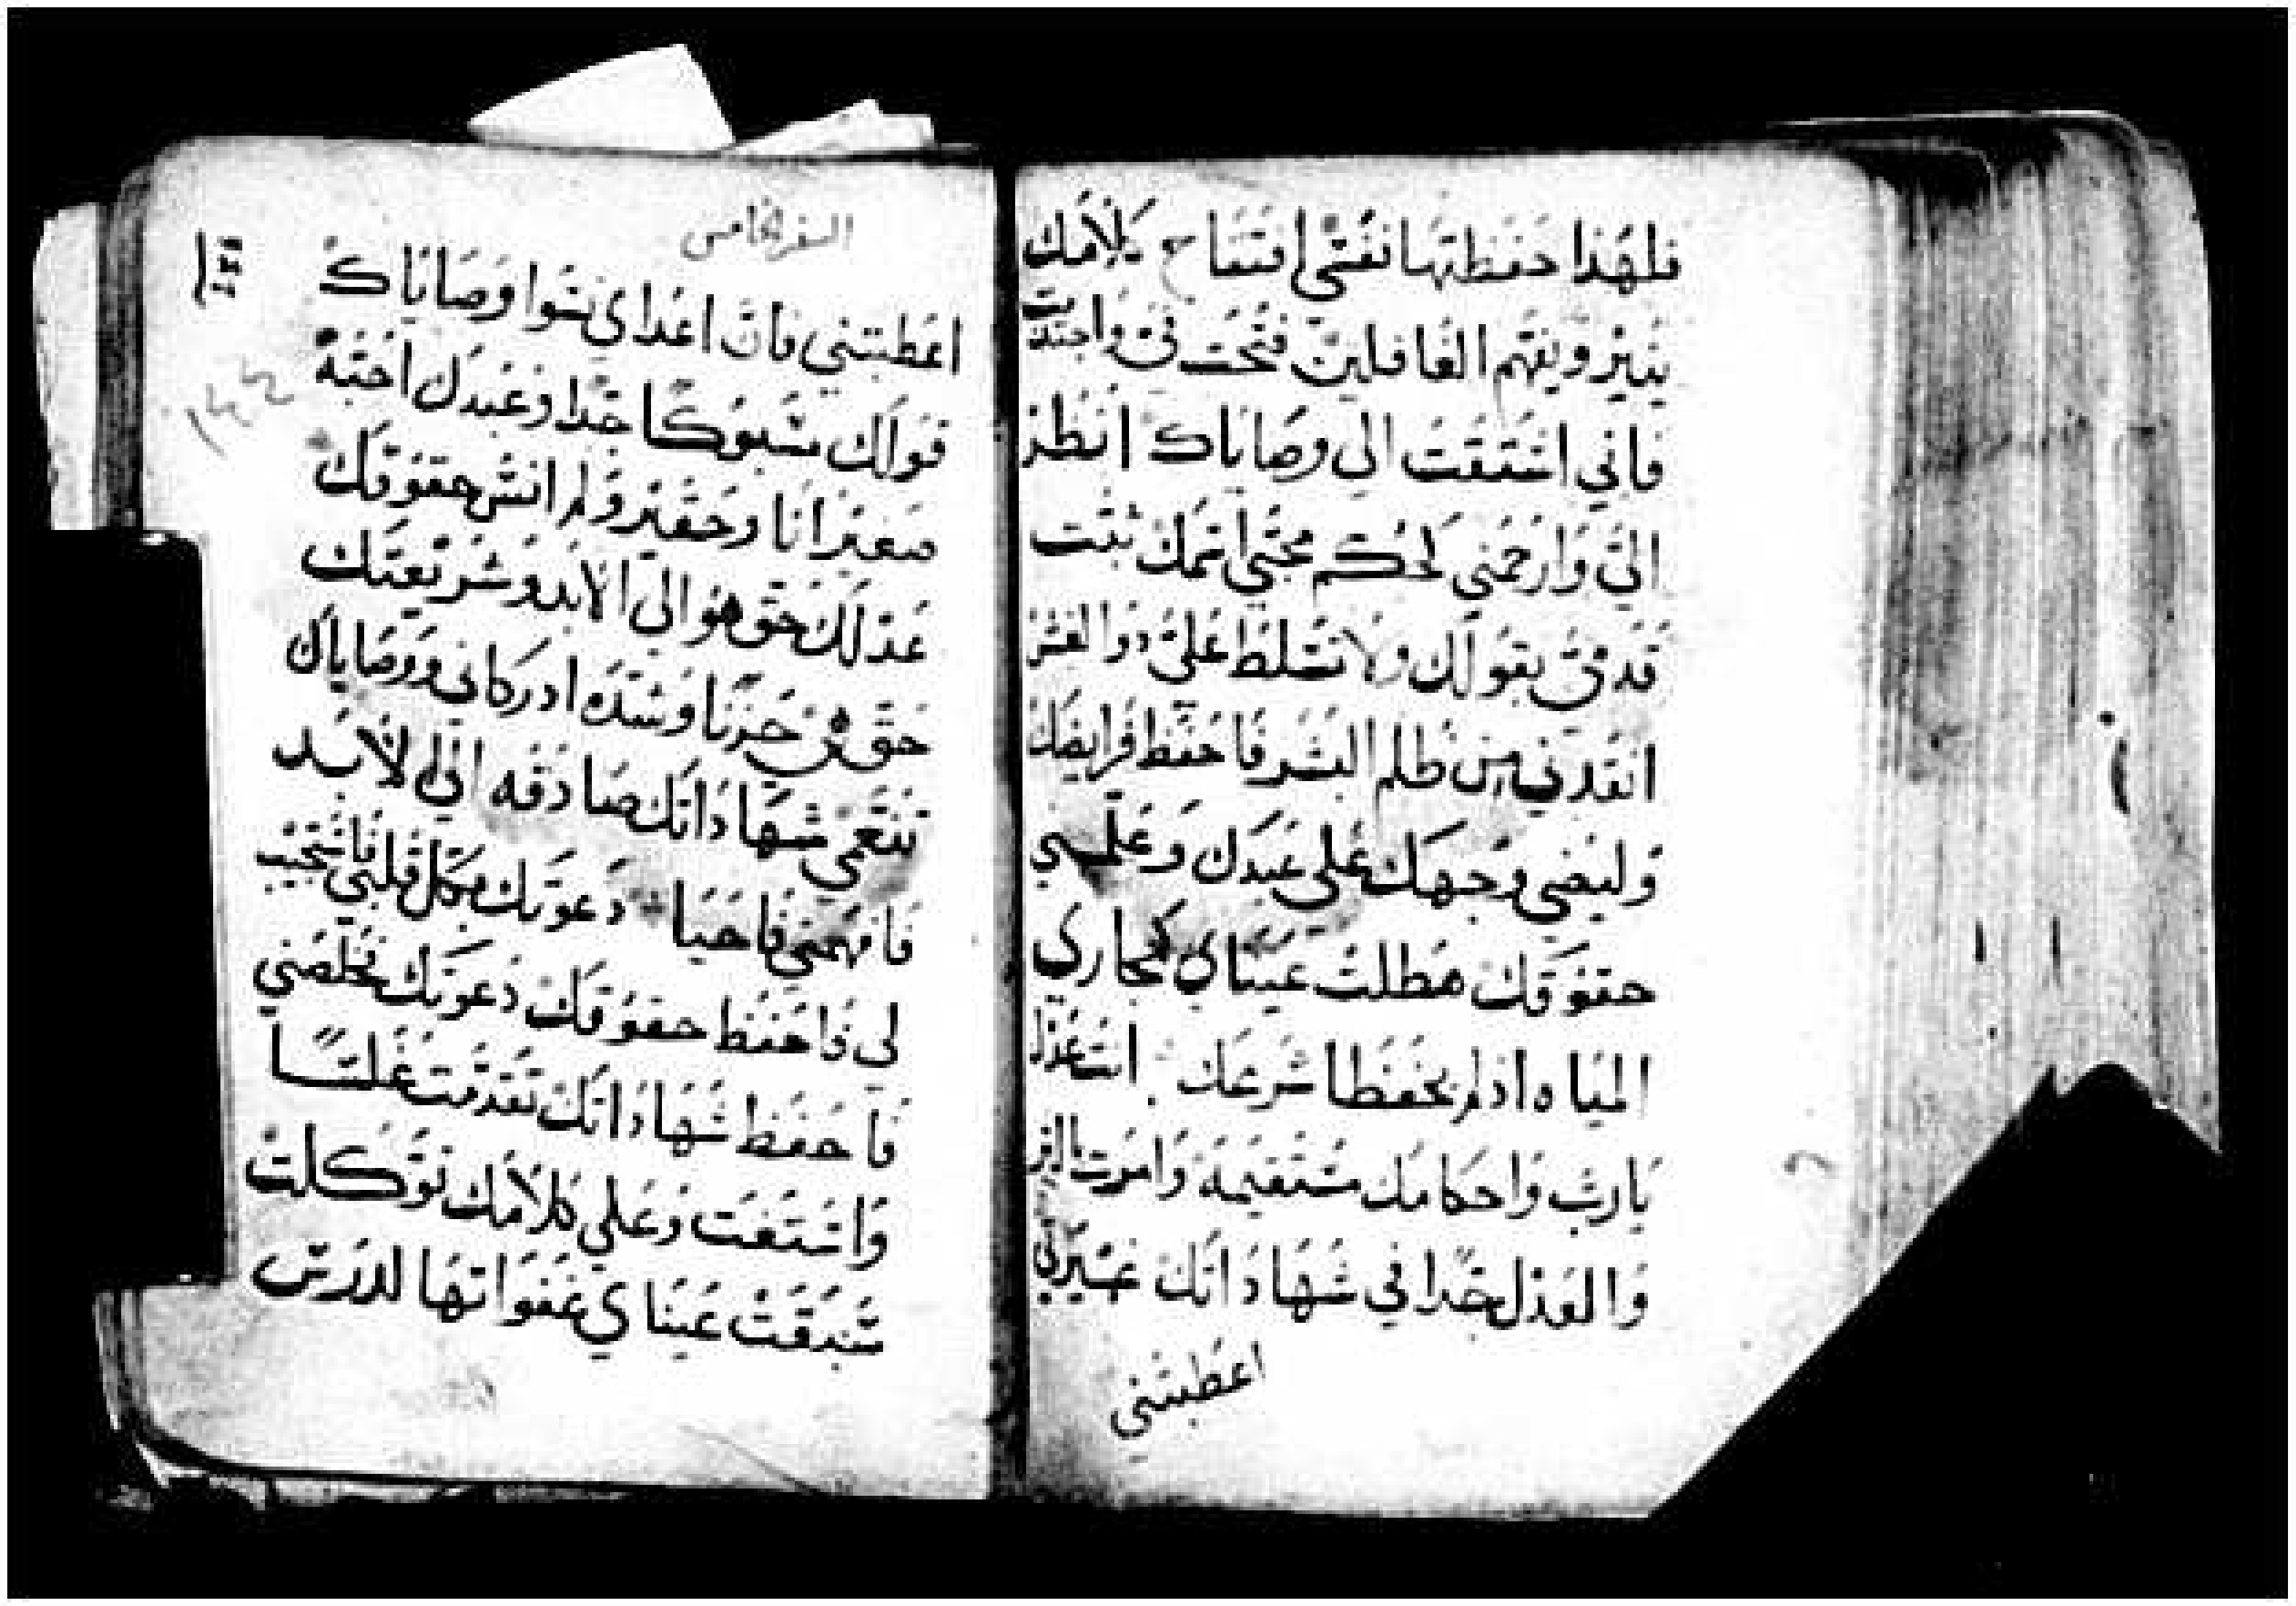 فلهذا حفظتها نفسي افتتاح كلامك
ينير ويفهم الغافلين فتحت في واجتذبت
فاني اشتقت الى وصاياك انظر
اليّ وارحمني كحكم محبي اسمك ثبّت
قدمي بقولك ولا تسلط عليّ ذوا الغش
انقذني من ظلم البشر فاحفظ فرايضك
وليضي وجهك على عبدك وعلمني
حقوقك هطلت عيناي كمجاري
المياه اذ لم يحفظا شرعك استعذل
يارب واحكامك مستقيمه وامرت بالبر
والعدل جدا في شهاداتك غيرتي
اعطبتني
السفر الخامس
اعطبتني فان اعداي نسوا وصاياك
قولك مسبوكا جدا وعبدك احبه
صغير انا وحقير ولم انس حقوقك
عدلك حق هو الى الابد وشريعتك
حق هي حزنا وشده ادركاني ووصاياك
تنعمي شهاداتك صادقه الى الابد
فافهمني فاحيا دعوتك بكل قلبي فاستجيب
لي فاحفظ حقوقك دعوتك خلصني
فاحفظ شهاداتك تقدمت غلسا
واستغت وعلى كلامك توكلت
سبقت عيناي غفواتها لدرس